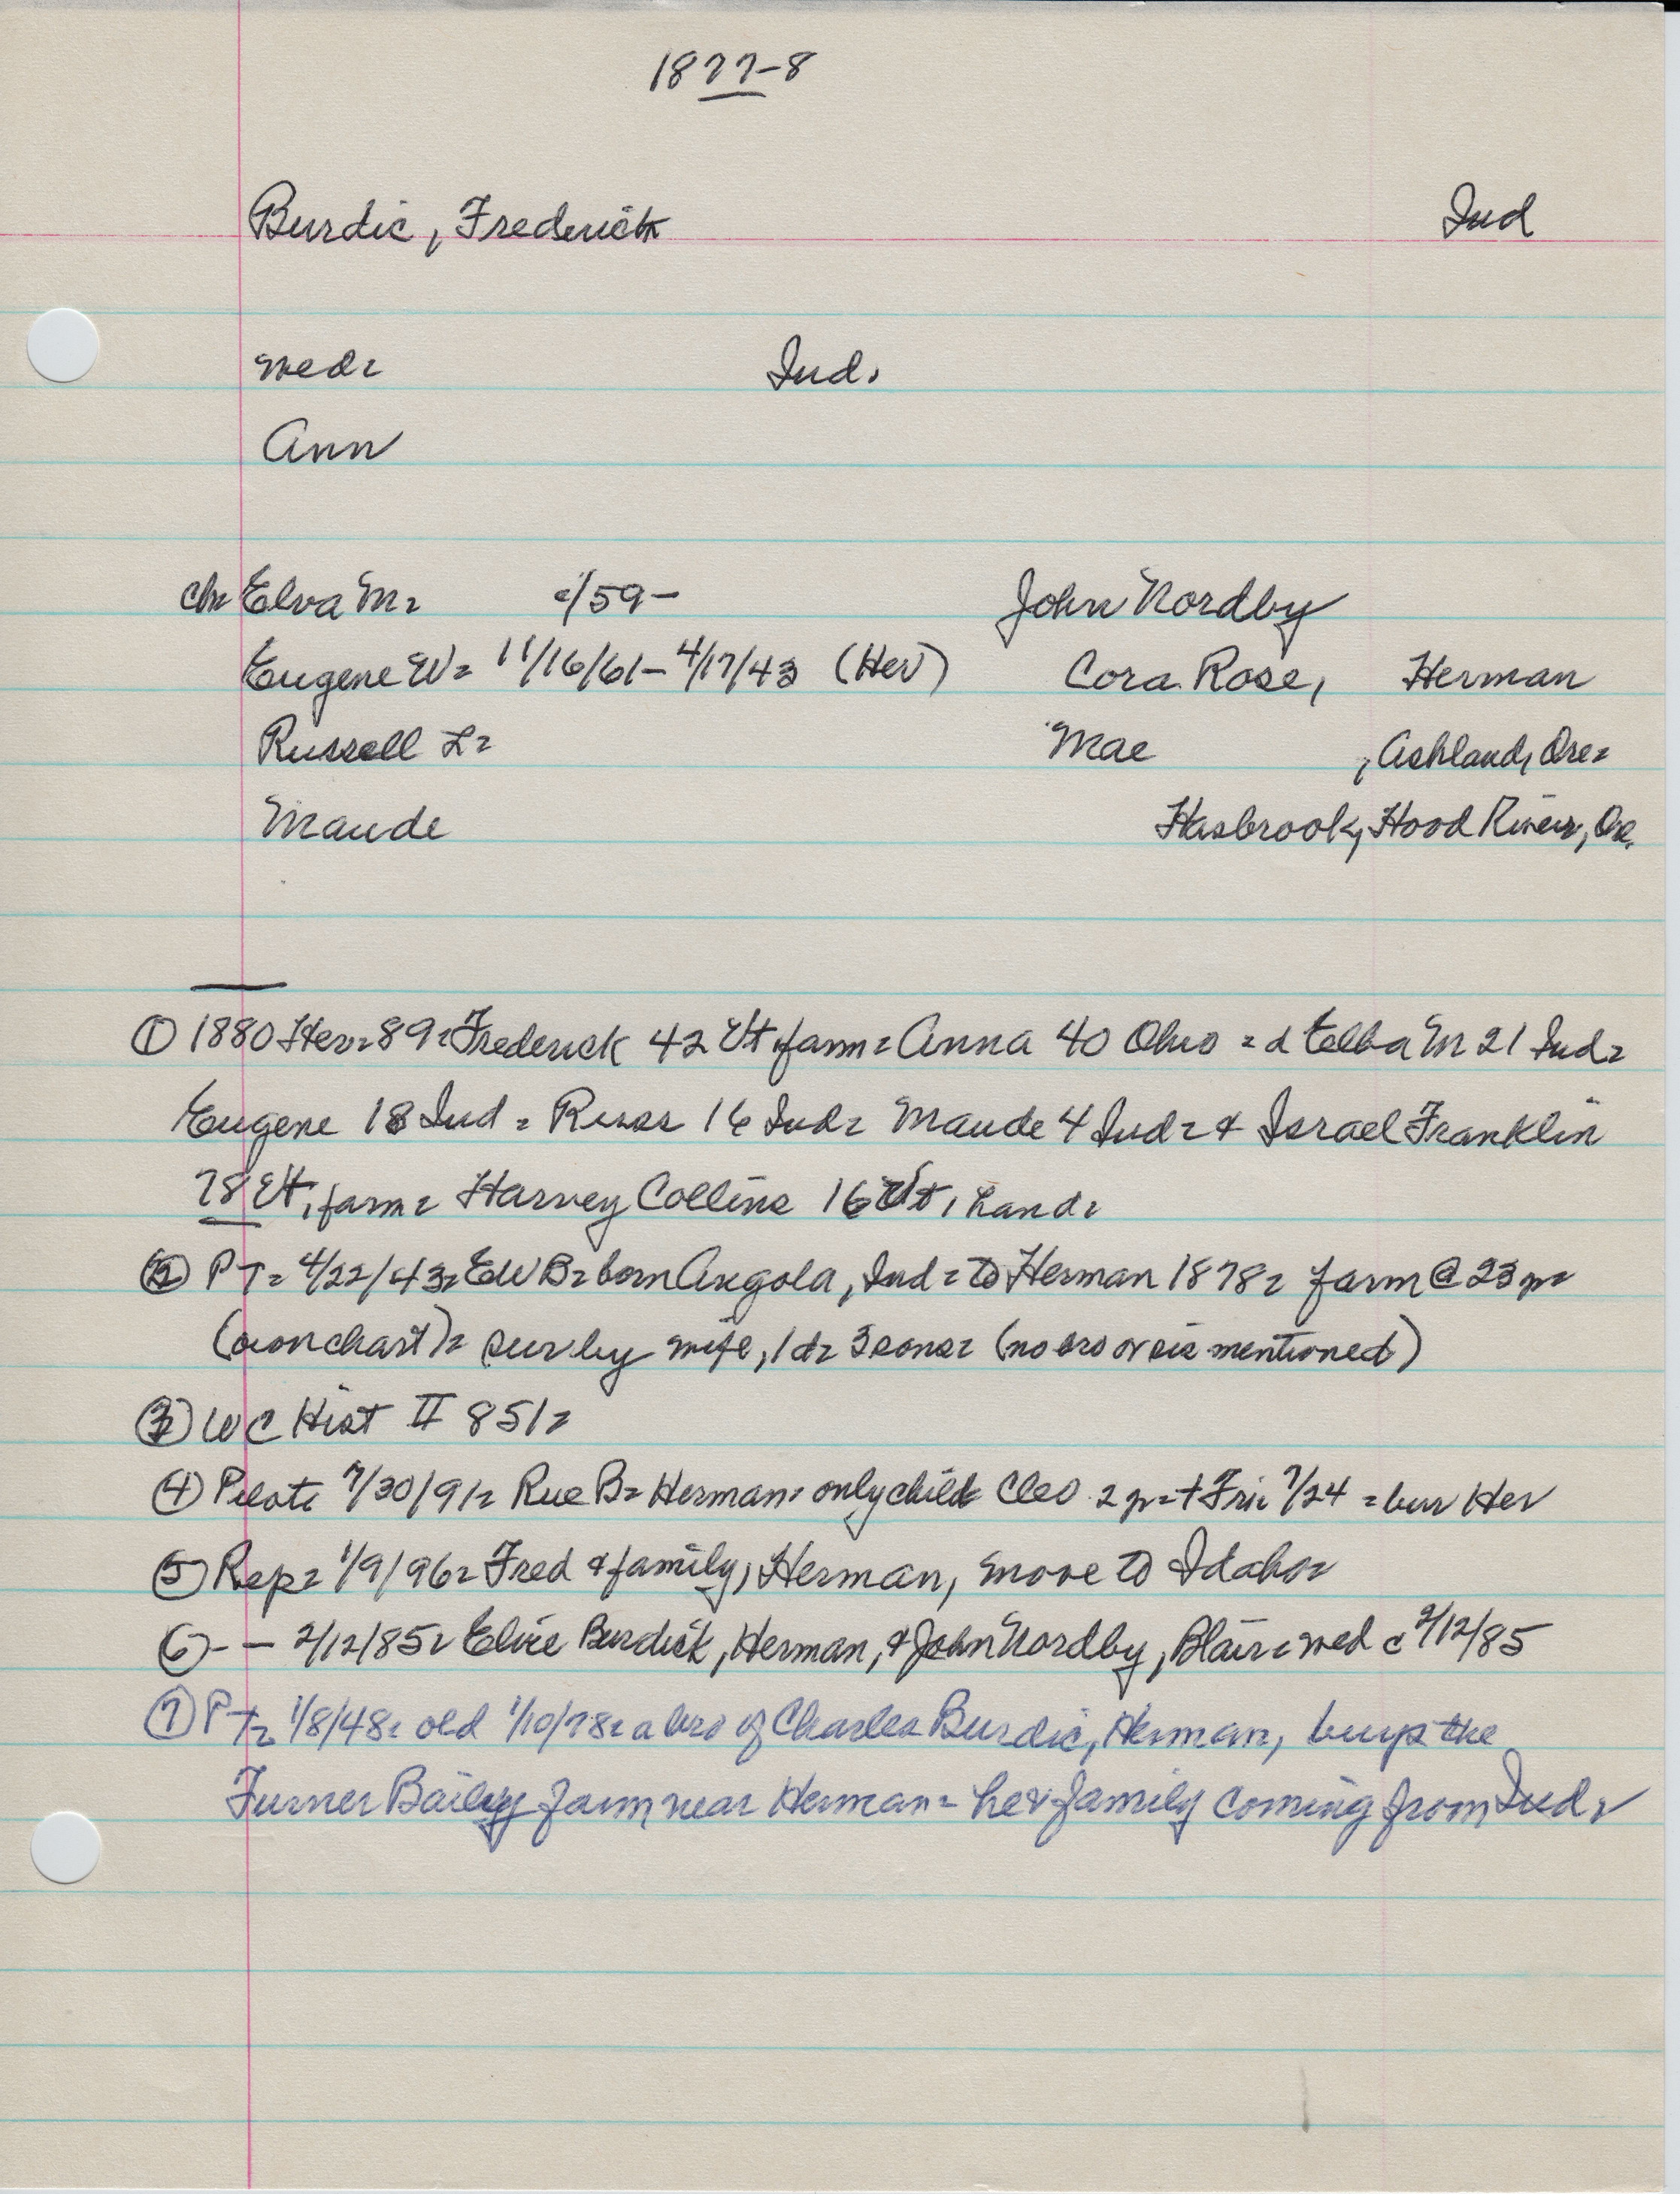 1877-8
Burdic, Frederick Ind
med= Ind.
Ann
ch= Elva M= c/59- John Nordby
Eugene W= 11/16/61-4/17/43 (Her) Cora Rose, Herman
Russell L= Mae , Ashland, Ore=
Maude Hasbrook, Hood River, Ore.
① 1880 Her=89=Frederick 42 Vt, farm= Anna 40 Ohio = d Elba M 21 Ind=
Eugene 18 Ind = Russ 16 Ind= Maude 4 Ind= & Israel Franklin
78 Vt, farm= Harvey Collins 16 Vt, hand=
② PT= 4/22/43= EW B= born Angola, Ind = to Herman 1878= farm @ 23 yr=
(as on chart)= sur by wife, 1 d= 3 sons= (no bro or sis mentioned)
③ WC Hist II 851=
④ Pilot= 7/30/91= Rue B= Herman= only child Cleo 2 yr=+ Fri= 7/24 = bur Her
⑤ Rep= 1/9/96= Fred & family, Herman, move to Idaho=
⑥ - - 2/12/85= Elvie Burdick, Herman, & John Nordby, Blair= med c 2/12/85
⑦ PT= 1/8/48= old 1/10/78= a bro of Charles Burdic, Herman, buys the
Turner Bailey farm near Herman= he & family coming from Ind=